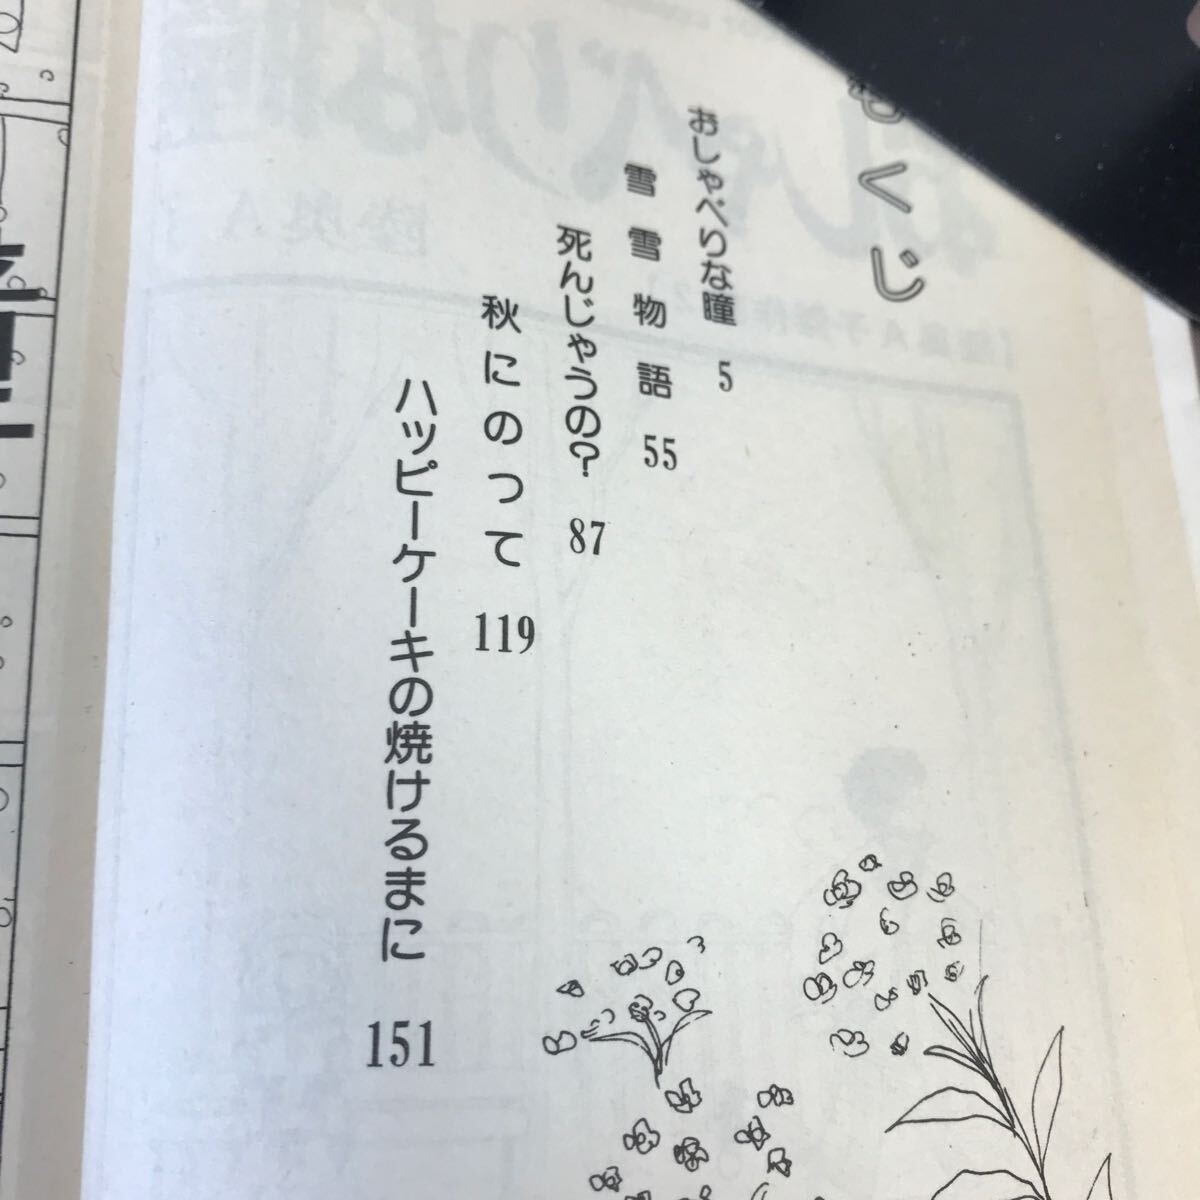 もくじ
おしゃべりな瞳 5
雪雪物語 55
死んじゃうの? 87
秋にのって 119
ハッピーケーキの焼けるまに 151